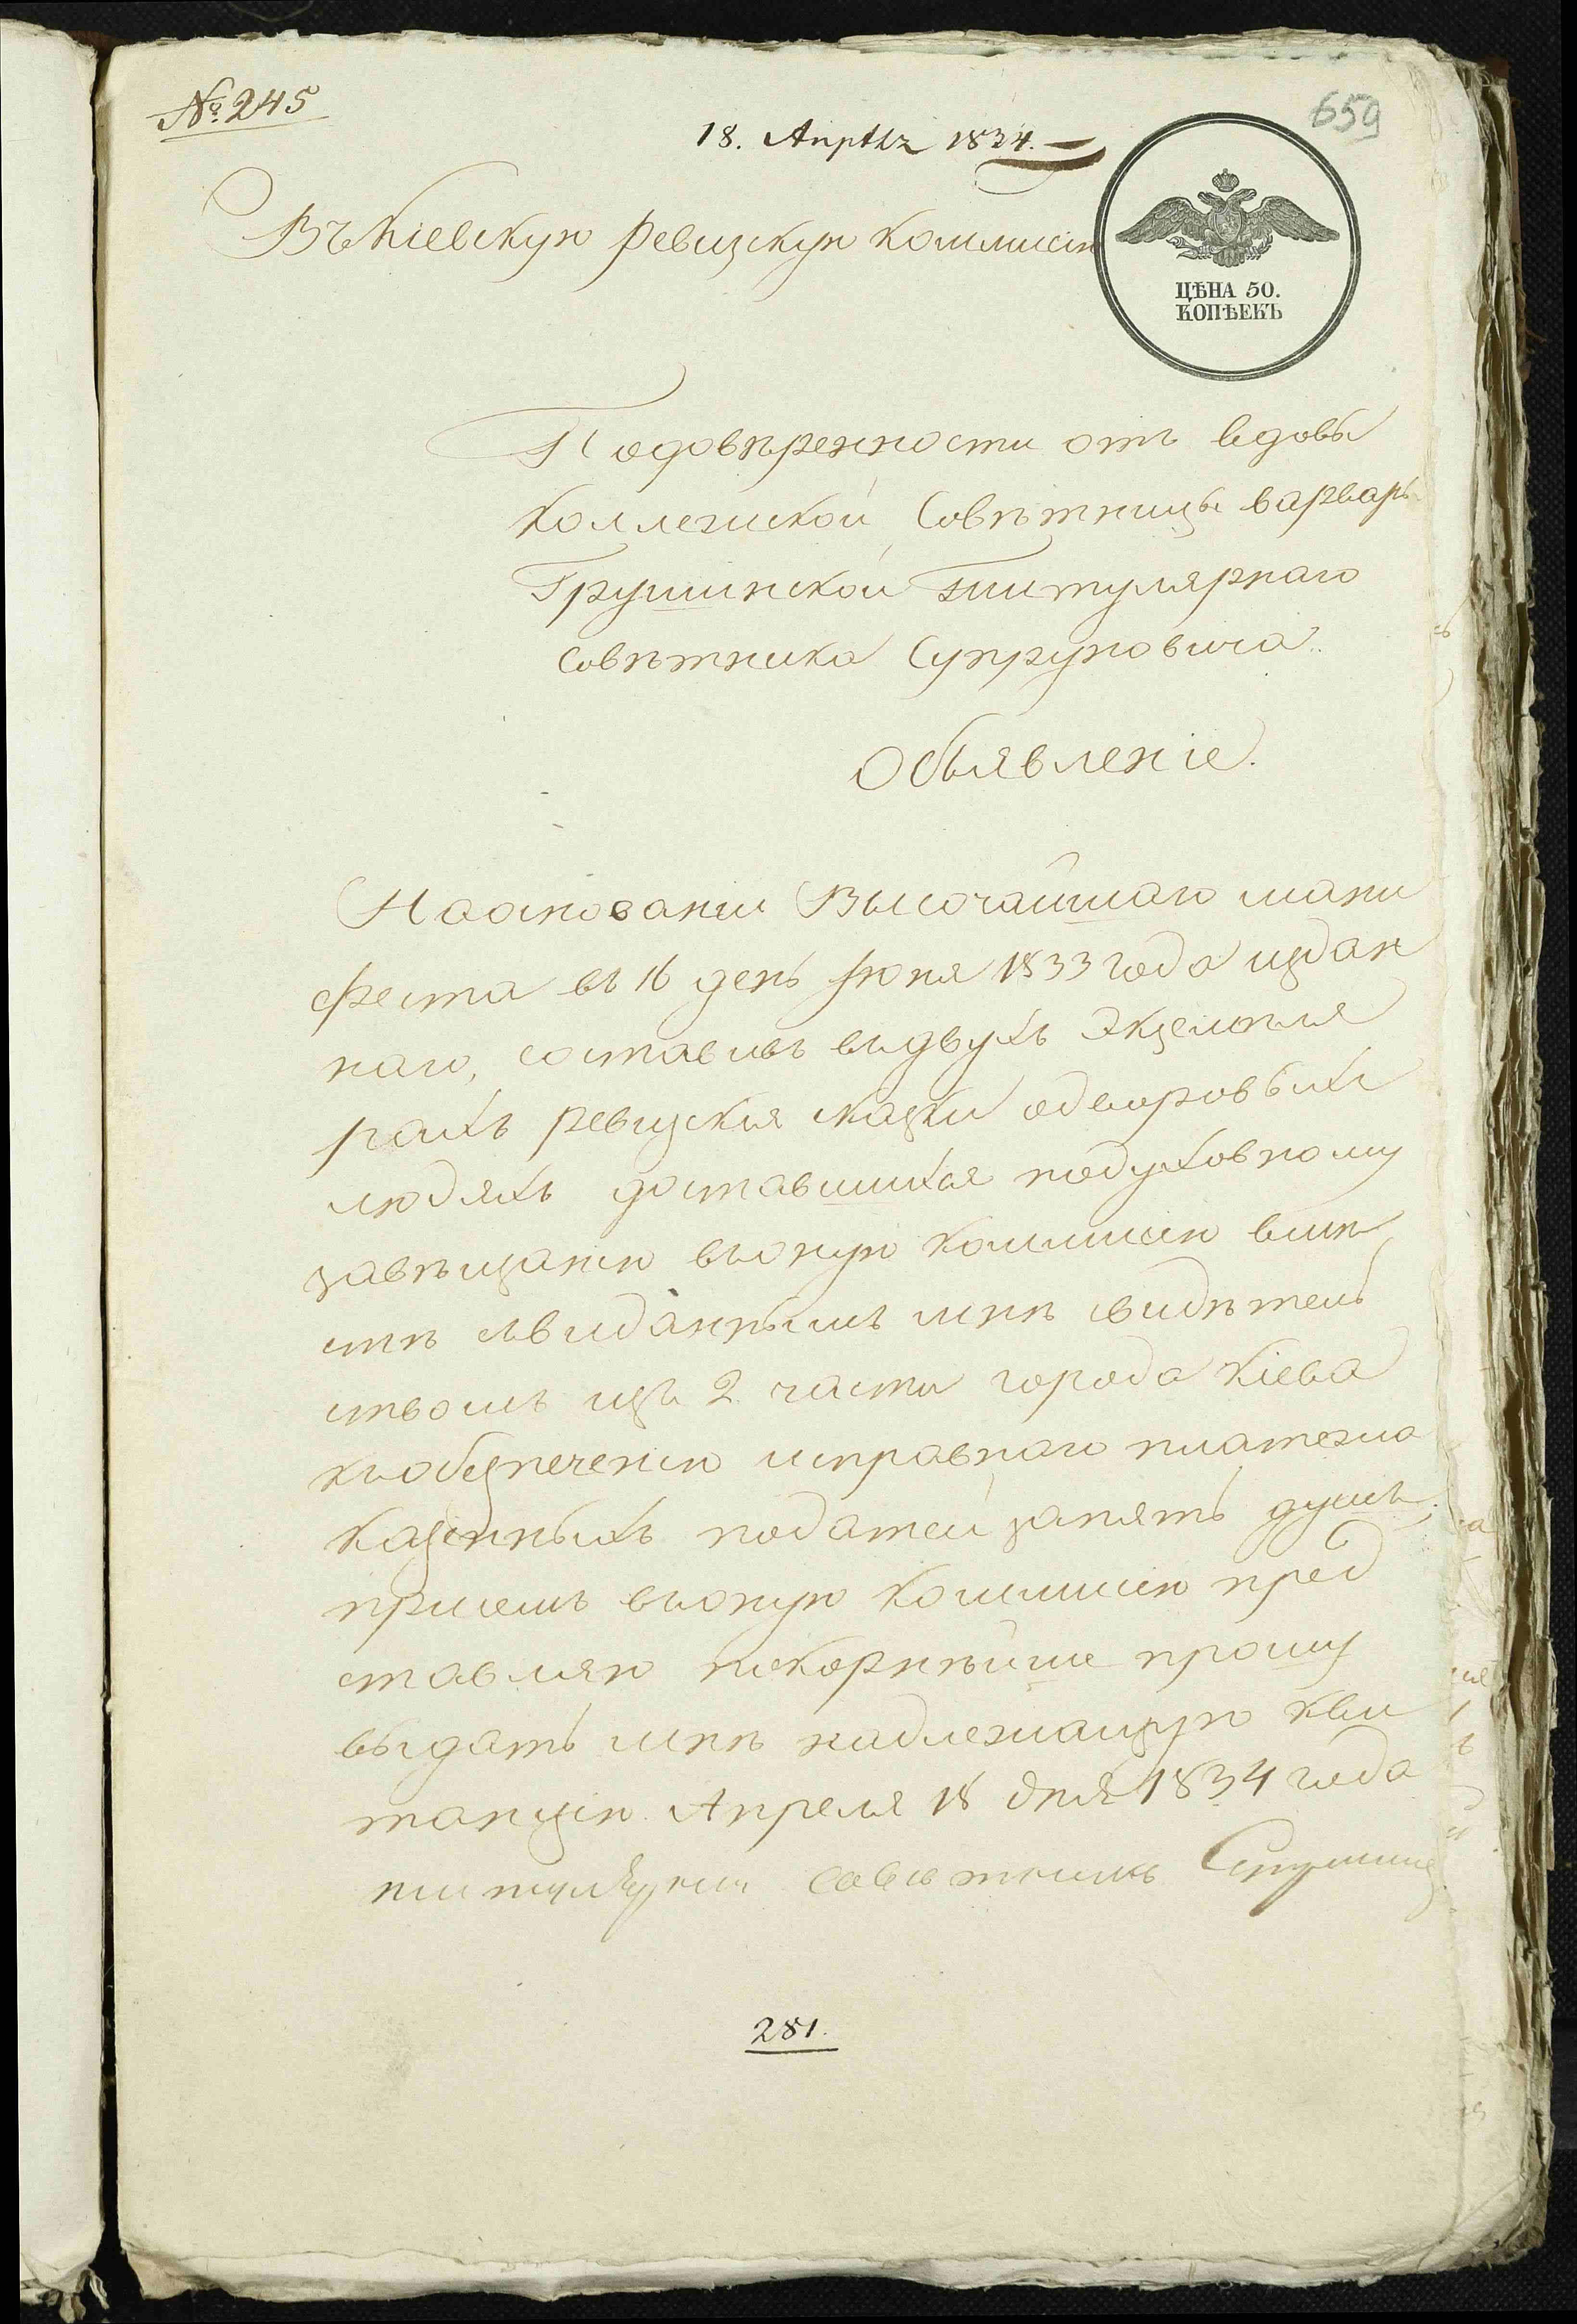 № 245
659
18. Апрѣлъ 1834.
Въ Кіевскую Ревизскую Коммисію
ЦѢНА 50.
КОПѢЕКЪ
Подовѣренности отъ вдовы
Коллезиской Совѣтницы варвары
Грушинской Титулярнаго
Совѣтника Супруновича
Объявленіе.
Наоснованіи Высочайшаго мани
феста въ 16 день Іюня 1833 года издан
наго, составивъ въдвухъ Экземпля
рахъ ревизскія сказки одворовыхъ
людяхъ доставшихся подуховному
завѣщанію въоную Коммисію вмѣ
стѣ свиданнымъ мнѣ свидѣтель
ствомъ изъ 2 части города Кіева
кобезпеченію исправнаго платежа
Казенныхъ податей запять душъ,
присемъ въоную Коммисію пред
ставляю покорнѣйше прошу
выдать мнѣ надлежащую кви
танцію. Апреля 18 дня 1834 года
титулярнии советникъ
281.